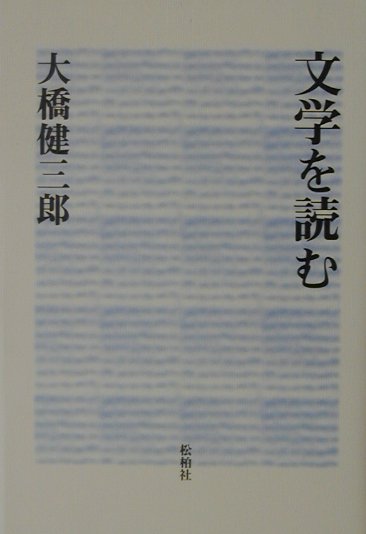 文学を読む
大橋健三郎
松柏社